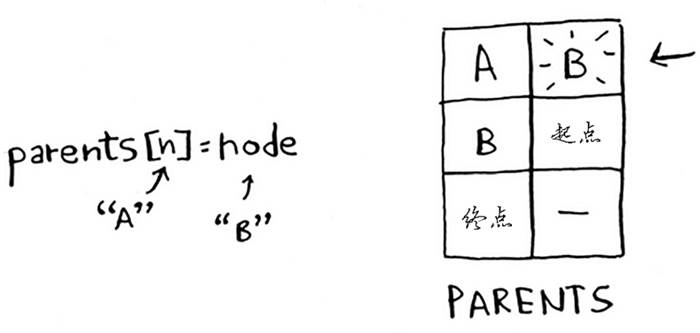 parents[n]=node
“A” “B”
A B
B 起点
终点 —
PARENTS